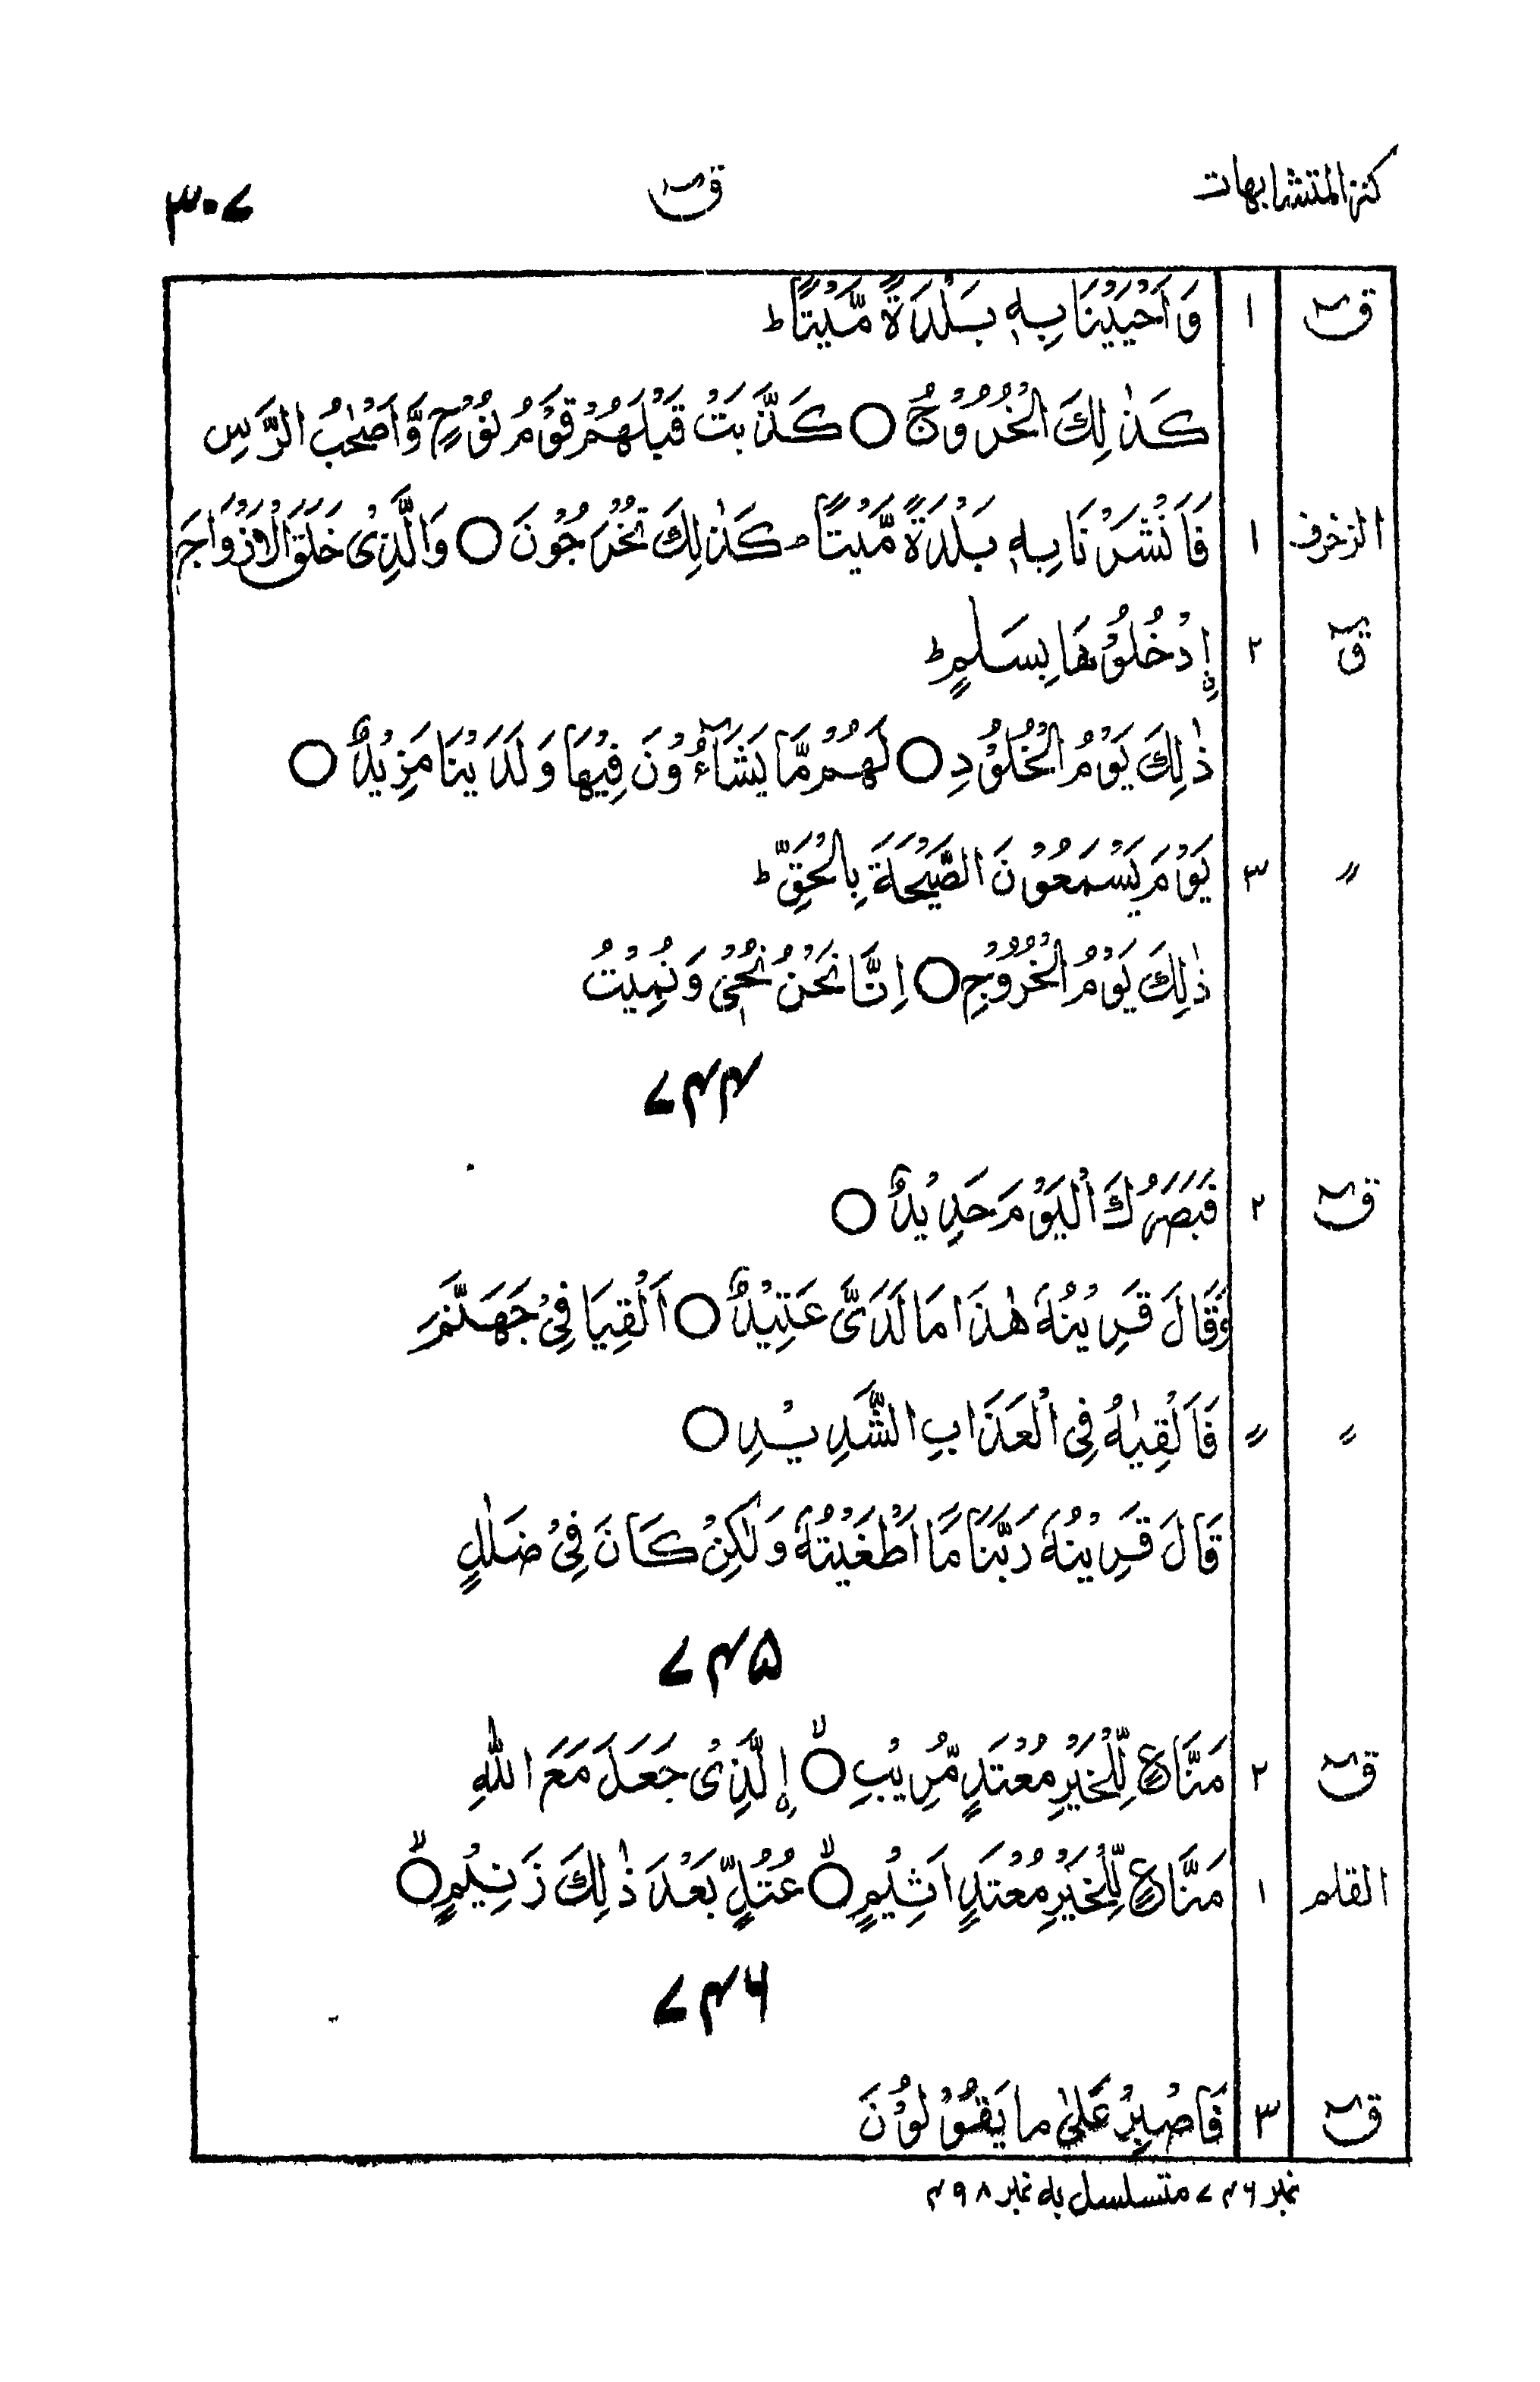 كنز المتشابهات قٓ ۳۰۷
قٓ ۱ وَاَحْيَيْنَا بِهٖ بَلْدَةً مَّيْتًا ؕ
كَذٰلِكَ الْخُرُوْجُ ○ كَذَّبَتْ قَبْلَهُمْ قَوْمُ نُوْحٍ وَّاَصْحٰبُ الرَّسِّ
الزخرف ۱ فَاَنْشَرْنَا بِهٖ بَلْدَةً مَّيْتًا ۚ كَذٰلِكَ تُخْرَجُوْنَ ○ وَالَّذِيْ خَلَقَ الْاَزْوَاجَ
قٓ ۲ اِۨدْخُلُوْهَا بِسَلٰمٍ ؕ
ذٰلِكَ يَوْمُ الْخُلُوْدِ ○ لَهُمْ مَّا يَشَآءُوْنَ فِيْهَا وَلَدَيْنَا مَزِيْدٌ ○
〃 ۳ يَوْمَ يَسْمَعُوْنَ الصَّيْحَةَ بِالْحَقِّ ؕ
ذٰلِكَ يَوْمُ الْخُرُوْجِ ○ اِنَّا نَحْنُ نُحْيٖ وَنُمِيْتُ
۷۴۴
قٓ ۲ فَبَصَرُكَ الْيَوْمَ حَدِيْدٌ ○
وَقَالَ قَرِيْنُهٗ هٰذَا مَا لَدَيَّ عَتِيْدٌ ○ اَلْقِيَا فِيْ جَهَنَّمَ
〃 〃 فَاَلْقِيٰهُ فِي الْعَذَابِ الشَّدِيْدِ ○
قَالَ قَرِيْنُهٗ رَبَّنَا مَآ اَطْغَيْتُهٗ وَلٰكِنْ كَانَ فِيْ ضَلٰلٍ
۷۴۵
قٓ ۲ مَنَّاعٍ لِّلْخَيْرِ مُعْتَدٍ مُّرِيْبِ ○ۙ اِۨلَّذِيْ جَعَلَ مَعَ اللّٰهِ
القلم ۱ مَنَّاعٍ لِّلْخَيْرِ مُعْتَدٍ اَثِيْمٍ ○ۙ عُتُلٍّۭ بَعْدَ ذٰلِكَ زَنِيْمٍ ○ۙ
۷۴۶
قٓ ۳ فَاصْبِرْ عَلٰى ما يَقُوْلُوْنَ
نمبر ۷۴۶ متسلسل به نمبر ۴۹۸